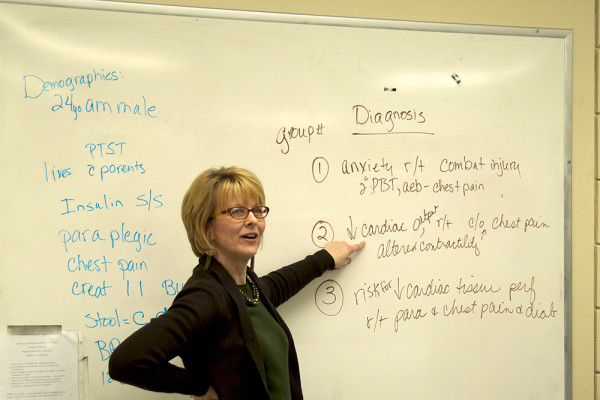 Demographics:
24yo am male
PTST
lives c parents
Insulin S/S
paraplegic
chest pain
creat 1.1
Stool=
Diagnosis
group#
1 anxiety r/t combat injury
2° PBT, aeb-chest pain
2 ↓ cardiac output r/t c/o chest pain
altered contractility
3 risk for ↓ cardiac tissue perf
r/t para & chest pain & diab